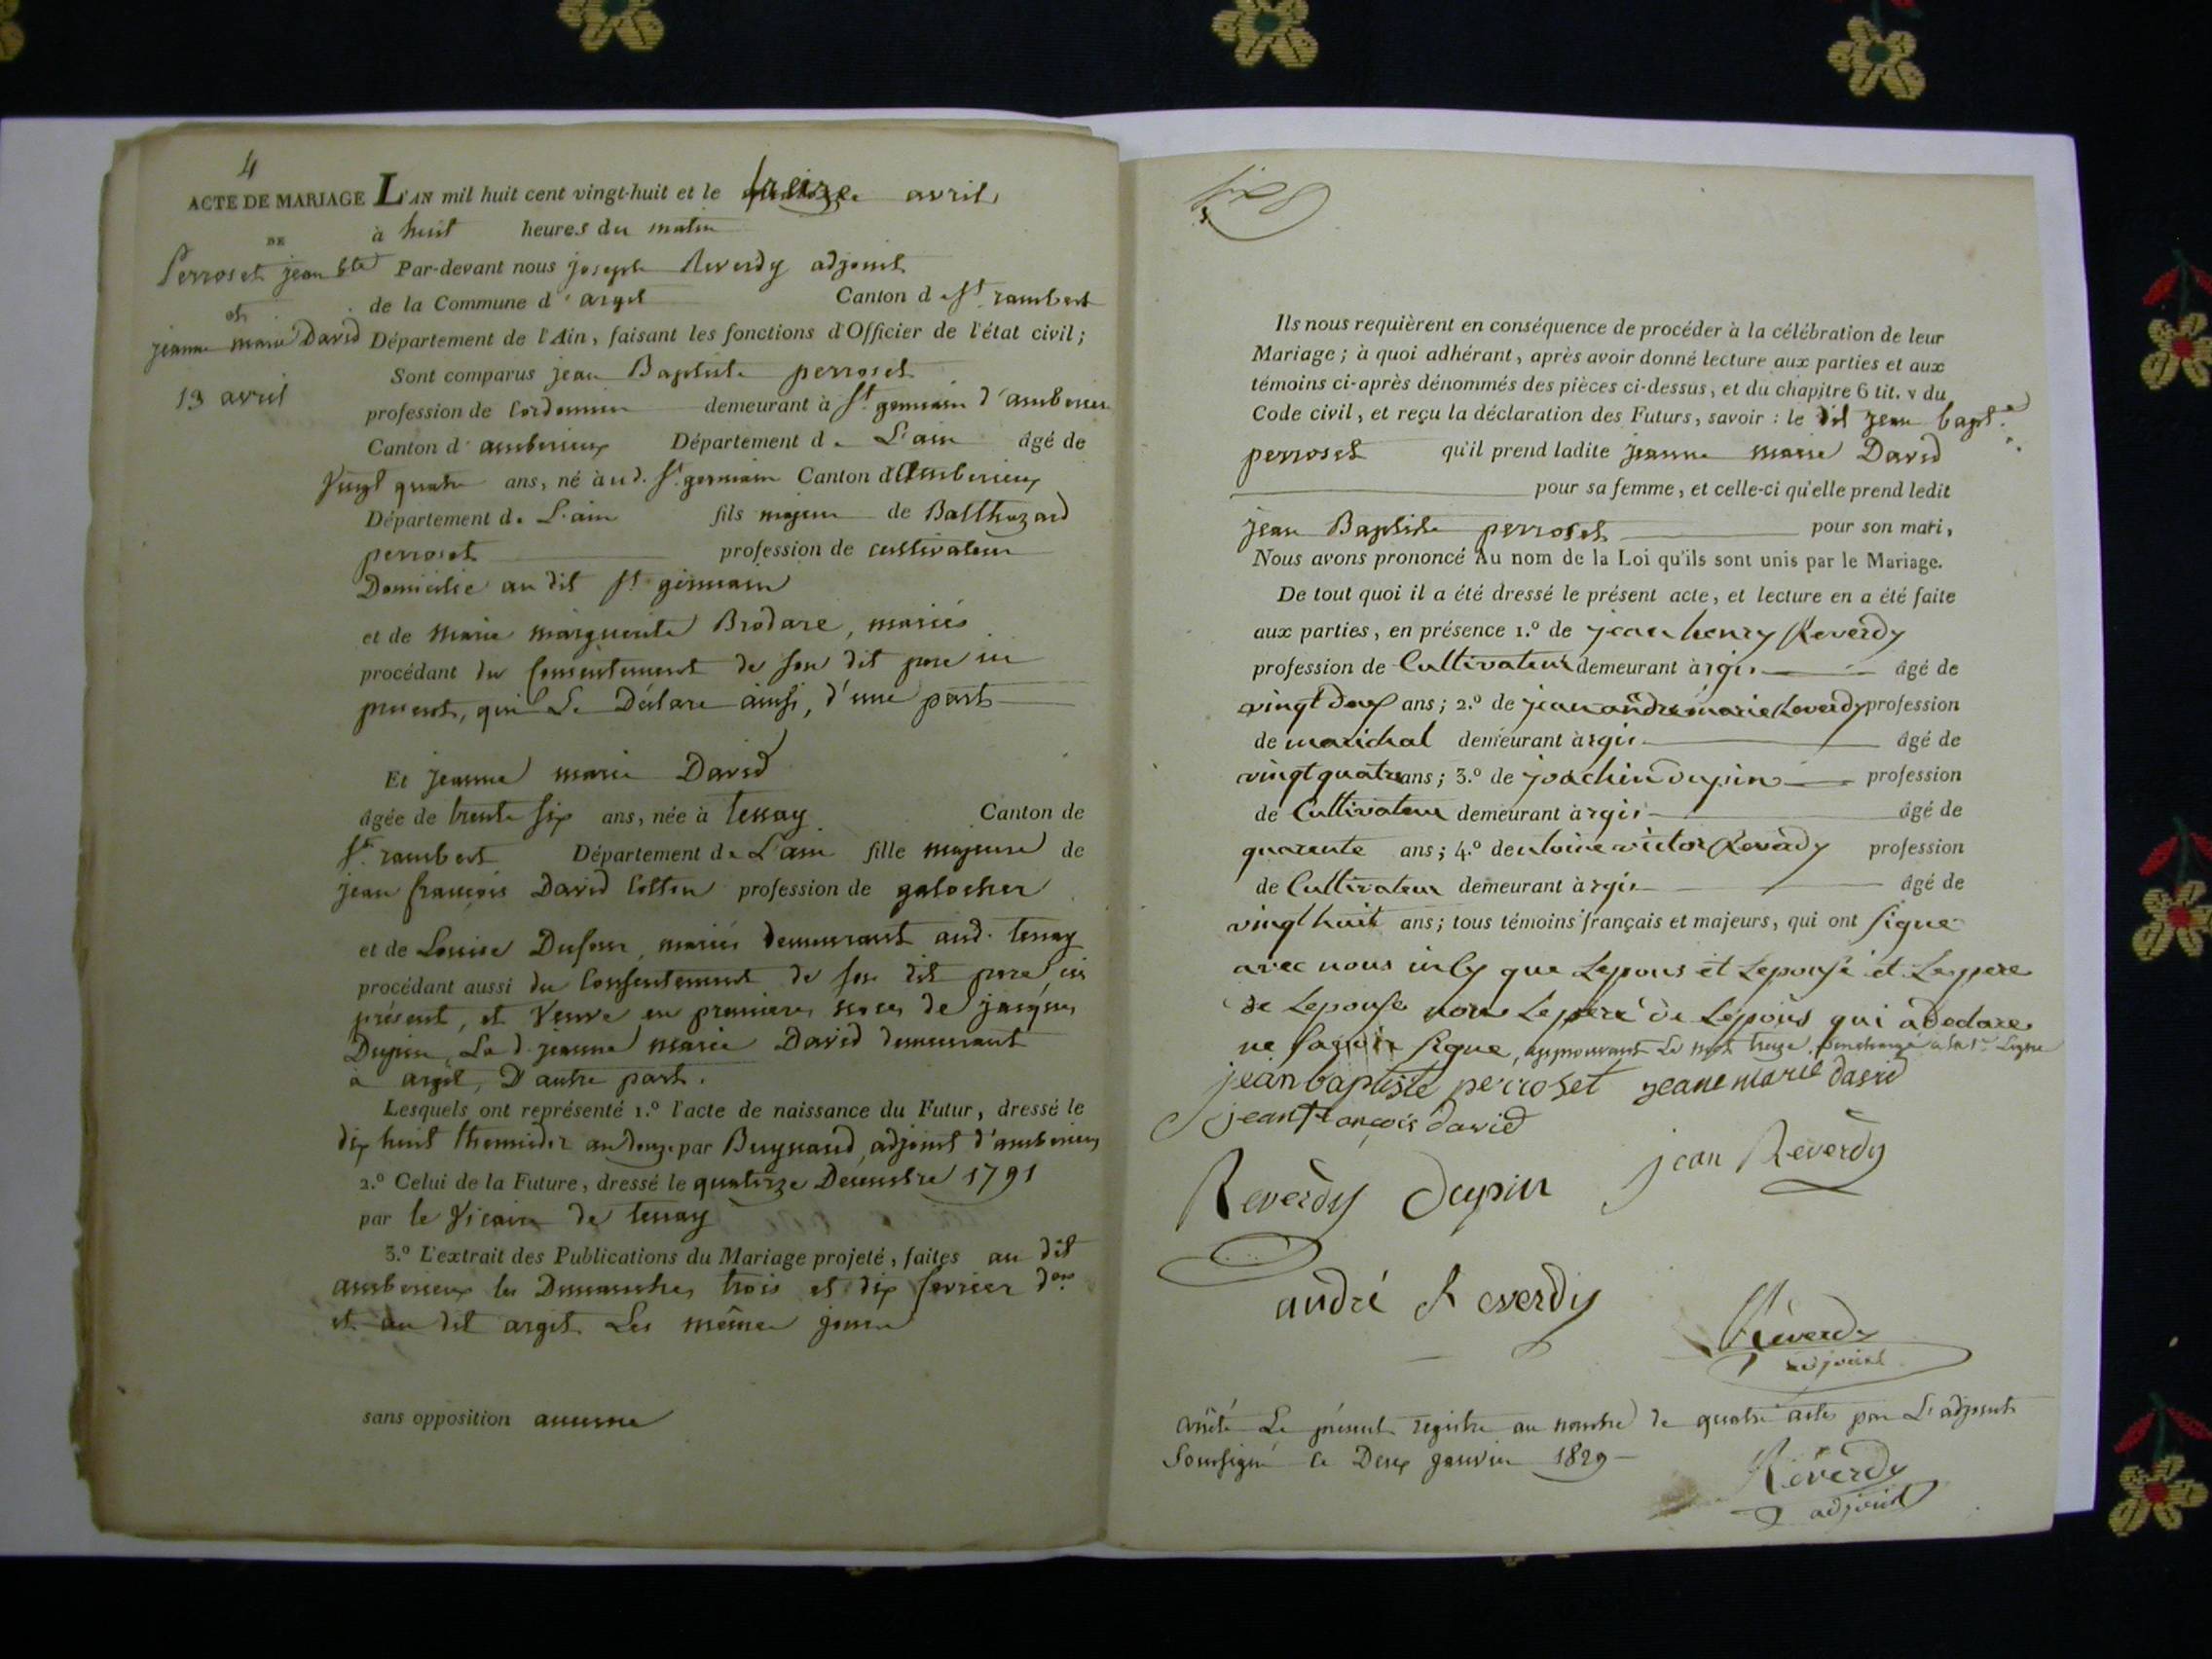 4
ACTE DE MARIAGE
DE
Perroset jean bte
et
jeanne marie David
13 avril
L'AN mil huit cent vingt-huit et le treize avril
à huit heures du matin
Par-devant nous joseph Reverdy adjoint
de la Commune d'argit Canton de St rambert
Département de l'Ain, faisant les fonctions d'Officier de l'état civil;
Sont comparus jean Baptiste perroset
profession de Cordonnier demeurant à St germain d'amberieu
Canton d'amberieux Département de L'ain âgé de
Vingt quatre ans, né à ud. St germain Canton d'Amberieux
Département de L'ain fils majeur de Balthazard
perroset profession de cultivateur
Domicilié au dit St germain
et de marie marguerite Brodare, mariés
procédant du Consentement de son dit pere ici
present, qui Le Déclare ainsi, d'une part
Et jeanne marie David
âgée de trente six ans, née à tenay Canton de
St rambert Département de L'ain fille majeure de
jean françois David Cottin profession de galocher
et de Louise Dufour, mariés demeurant aud. tenay
procédant aussi du Consentement de son dit pere ici
présent, et Veuve en premieres noces de jacques
Dupin, La d. jeanne marie David demeurant
à argit, D'autre part.
Lesquels ont représenté 1.º l'acte de naissance du Futur, dressé le
dix huit thermidor an douze par Buynand, adjoint d'amberieux
2.º Celui de la Future, dressé le quatorze Decembre 1791
par le Vicaire de tenay
3.º L'extrait des Publications du Mariage projeté, faites au dit
amberieux les Dimanches trois et dix fevrier der
et au dit argit Les mêmes jours
sans opposition aucune
Ils nous requièrent en conséquence de procéder à la célébration de leur
Mariage; à quoi adhérant, après avoir donné lecture aux parties et aux
témoins ci-après dénommés des pièces ci-dessus, et du chapitre 6 tit. v du
Code civil, et reçu la déclaration des Futurs, savoir: le dit jean bapt.e
perroset qu'il prend ladite jeanne marie David
pour sa femme, et celle-ci qu'elle prend ledit
jean Baptiste perroset pour son mari,
Nous avons prononcé Au nom de la Loi qu'ils sont unis par le Mariage.
De tout quoi il a été dressé le présent acte, et lecture en a été faite
aux parties, en présence 1.º de jean henry Reverdy
profession de Cultivateur demeurant à rgis âgé de
vingt deux ans; 2.º de jean andré marie Reverdy profession
de marichal demeurant à rgis âgé de
vingt quatre ans; 3.º de joachin dupin profession
de Cultivateur demeurant à rgis âgé de
quarente ans; 4.º de ntoine victor Reverdy profession
de Cultivateur demeurant à rgis âgé de
vingt huit ans; tous témoins français et majeurs, qui ont signe
avec nous insy que Lepous et Lepouse et Le pere
de Lepouse non Le pere de Lepous qui a declare
ne savoir signe, approuvant Le mot treize, a la 1re Ligne
jean baptiste perroset jeane marie david
jean francois david
Reverdy dupin jean Reverdy
andré Reverdy
Reverdy
adjoint
Arrêté Le présent registre au nombre de quatre actes par L'adjoint
Soussigné Ce Deux janvier 1829
Reverdy
adjoint